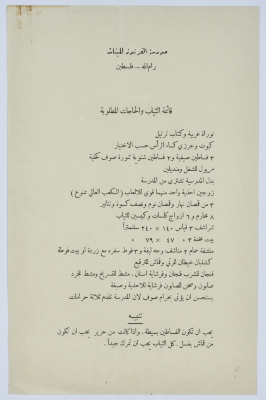 مدرسة الفرندز للبنات
رام الله – فلسطين
قائمة الثياب والحاجات المطلوبة
توراة عربية وكتاب ترتيل
كبوت وجرزي كساء الرأس حسب الاختيار
٣ فساطين صيفية و ٢ فساطين شتوية تنورة صوف كحلية
٣ مريول للشغل ومنديلين
بدل المدرسية تشترى من المدرسة
زوجين احذية واحد منهما قوي للالعاب (الكعب العالي ممنوع)
٣ من قمصان نهار وقمصان نوم ونصف كسوة وتنانير
٨ محارم و ٦ ازواج كلسات وكيسين للثياب
شراشف ٣ قياس ١٤٠ × ٢٤٠ سنتمتراً
بيت مخدة ٣ » ٤٧ × ٧٩ »
منشفة حمام ٢ مناشف وجه ليفة و ٣ فوط سفره مع زردة او بيت فوطة
كشتبان خيطان للرتي وقماش للترقيع
فنجان للشرب فنجان وفرشاية اسنان. مشط للتسريح ومشط للجرد
صابون وصحن للصابون فرشاية للاحذية وصبغة
يستحسن ان يؤتى بحرام صوف لان المدرسة تقدم ثلاثة حرامات
تنبيه
يجب ان تكون الفساطين بسيطة. واذا كانت من حرير يجب ان تكون
من قماش يغسل. كل الثياب يجب ان تمرك جيداً.